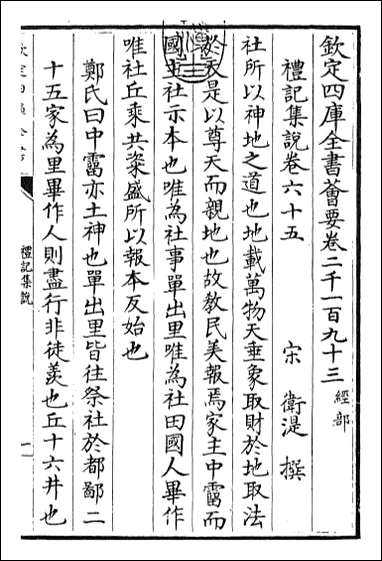 欽定四庫全書薈要卷二千一百九十三 經部
禮記集說卷六十五
宋 衛湜 撰
社所以神地之道也地載萬物天垂象取財於地取法
於天是以尊天而親地也故教民美報焉家主中霤而
國主社示本也唯為社事單出里唯為社田國人畢作
唯社丘乘共粢盛所以報本反始也
鄭氏曰中霤亦土神也單出里皆往祭社於都鄙二
十五家為里畢作人則盡行非徒羨也丘十六井也
禮記集說
一